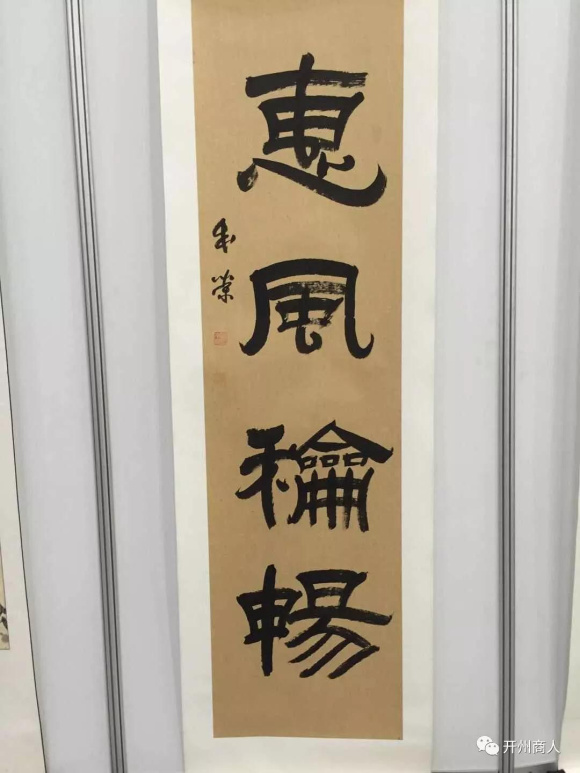 惠風龢暢
开州商人